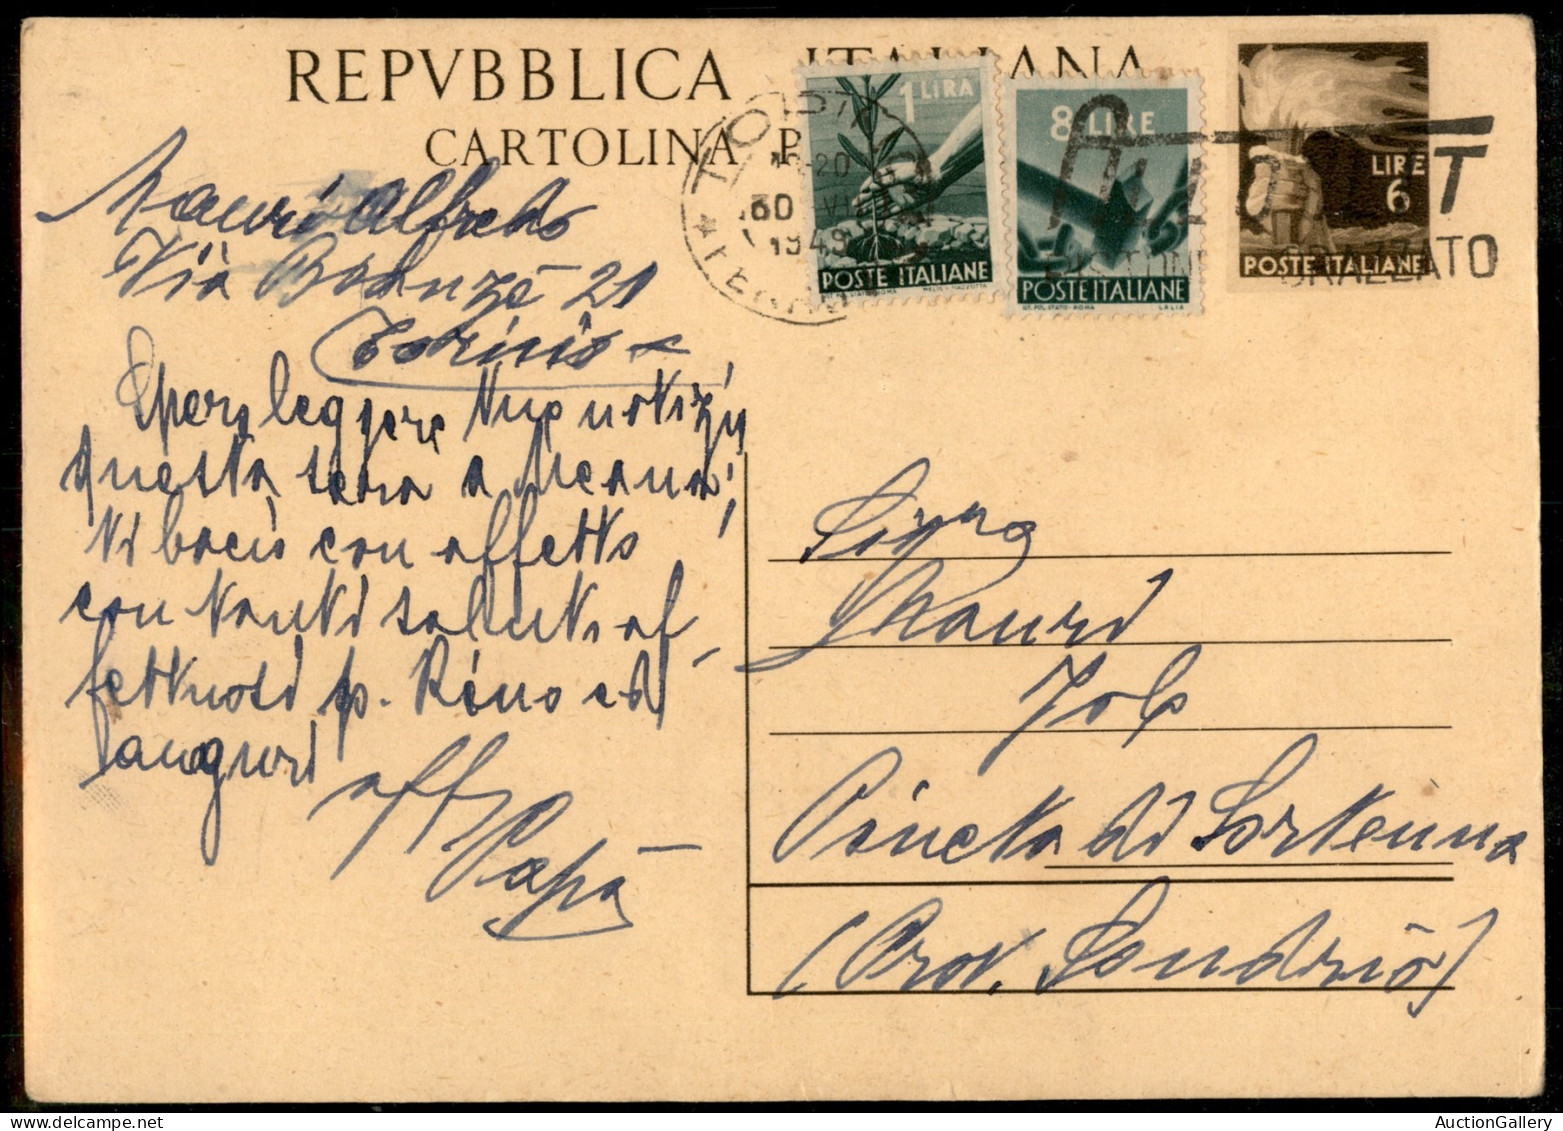 REPVBBLICA ITALIANA
CARTOLINA P
1 LIRA
POSTE ITALIANE
8 LIRE
POSTE ITALIANE
LIRE
6
POSTE ITALIANE
1949
GRAZZATO
Mauri Alfredo
Via Brianze 21
Torino
Spero leggere tue notizie
questa sera a Meana;
ti bacio con affetto
con tanti saluti af
fettuosi p. Rino ed
auguri
aff
Papà
Sig.ra
Mauri
Jole
Pineta di Sortenna
(Prov. Sondrio)
AuctionGallery